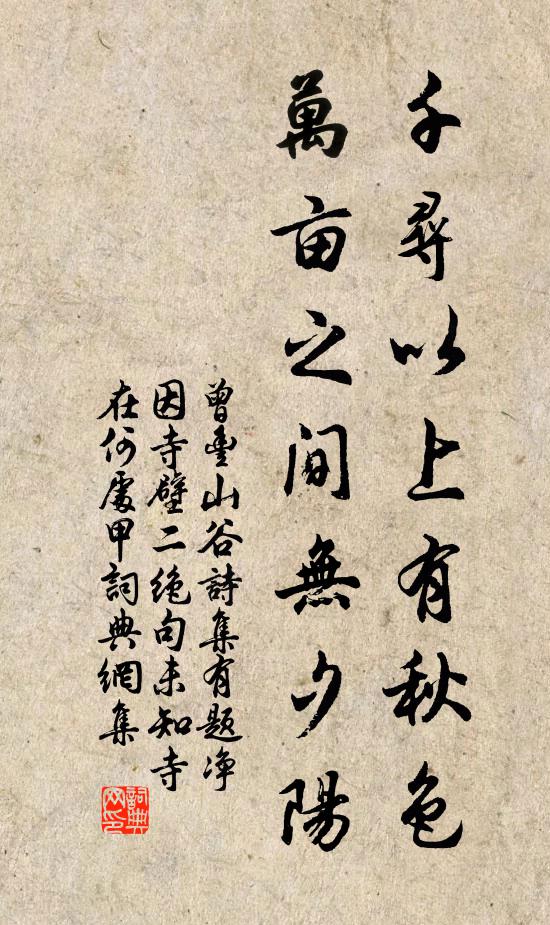 千尋以上有秋色
萬亩之間無夕陽
曾豊山谷詩集有題净
因寺壁二絶句未知寺
在何處甲詞典網集
詞典网印